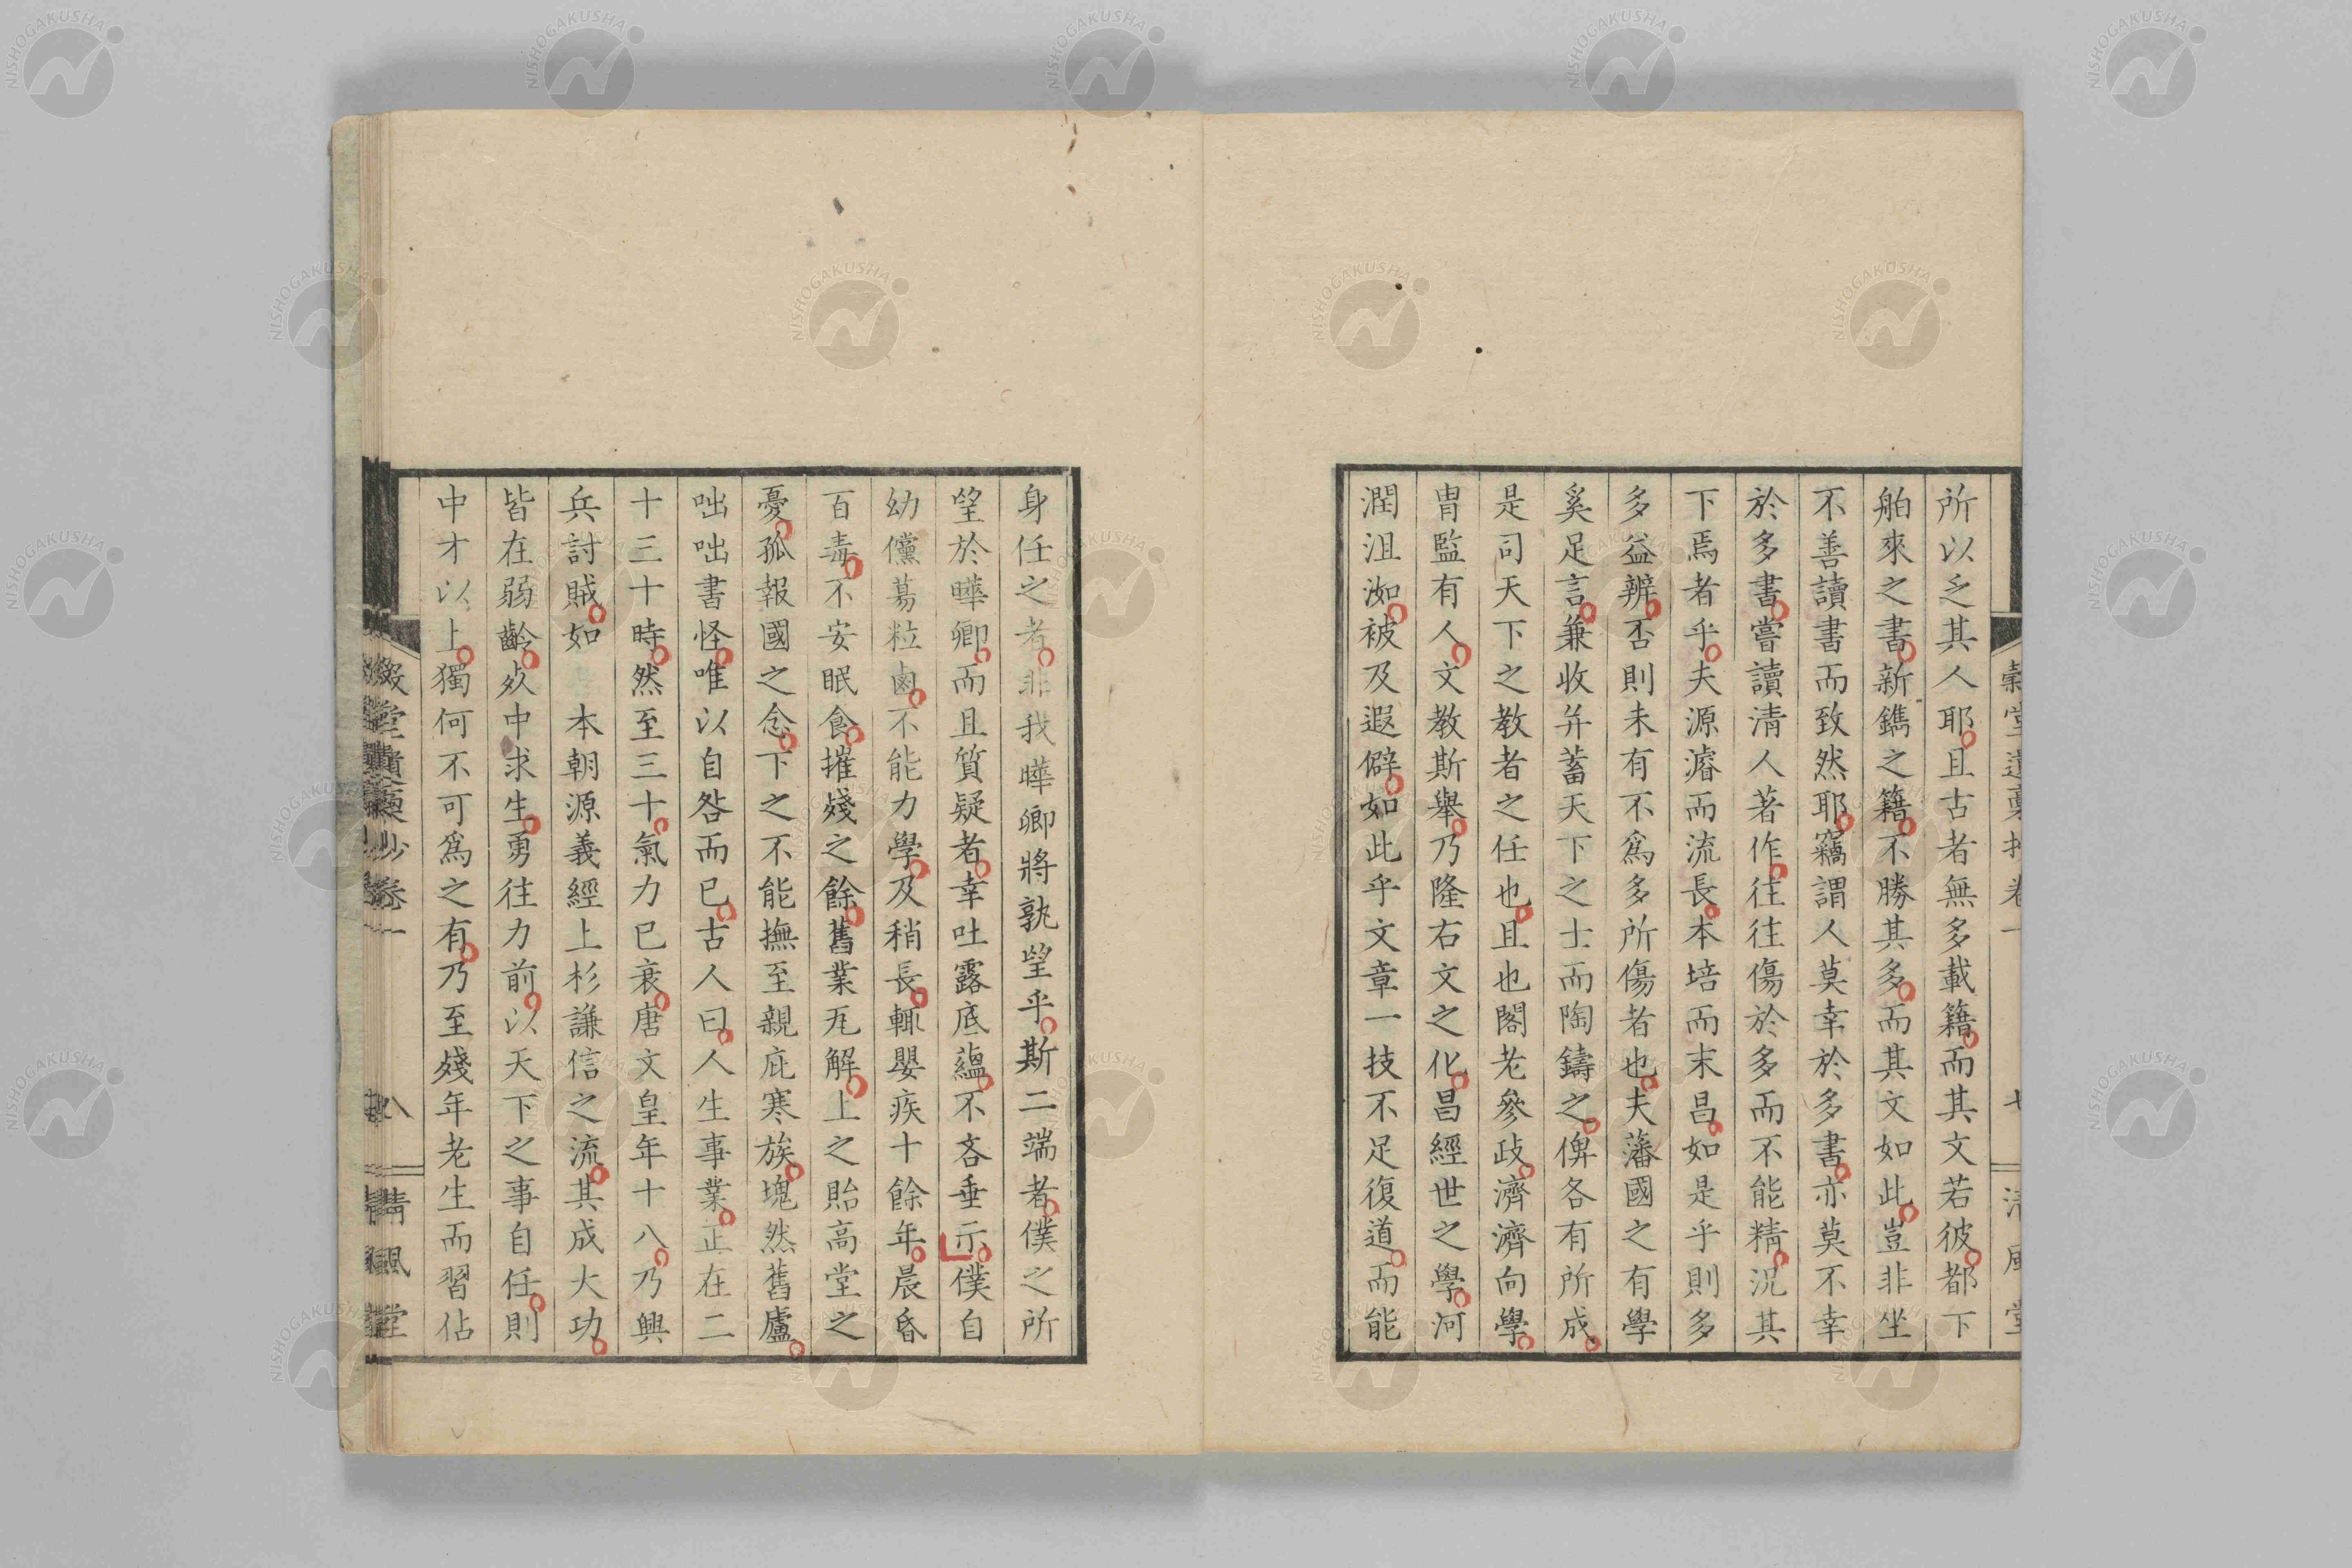 所以乏其人耶且古者無多載籍而其文若彼都下
舶來之書新鐫之籍不勝其多而其文如此豈非坐
不善讀書而致然耶竊謂人莫幸於多書亦莫不幸
於多書嘗讀清人著作往往傷於多而不能精況其
下焉者乎夫源濬而流長本培而末昌如是乎則多
多益辨否則未有不爲多所傷者也夫藩國之有學
奚足言兼收并蓄天下之士而陶鑄之俾各有所成
是司天下之教者之任也且也閣老參政濟濟向學
冑監有人文教斯舉乃隆右文之化昌經世之學河
潤沮洳被及遐僻如此乎文章一技不足復道而能
身任之者非我曄卿將孰望乎斯二端者僕之所
望於曄卿而且質疑者幸吐露底蘊不吝垂示僕自
幼儻蕩粒鹵不能力學及稍長輒嬰疾十餘年晨昏
百毒不安眠食摧殘之餘舊業瓦解上之貽高堂之
憂孤報國之念下之不能撫至親庇寒族塊然舊廬
咄咄書怪唯以自咎而已古人曰人生事業正在二
十三十時然至三十氣力已衰唐文皇年十八乃興
兵討賊如 本朝源義經上杉謙信之流其成大功
皆在弱齡於中求生勇往力前以天下之事自任則
中才以上獨何不可爲之有乃至殘年老生而習佔
穀堂遺稾抄卷一 八 清風堂